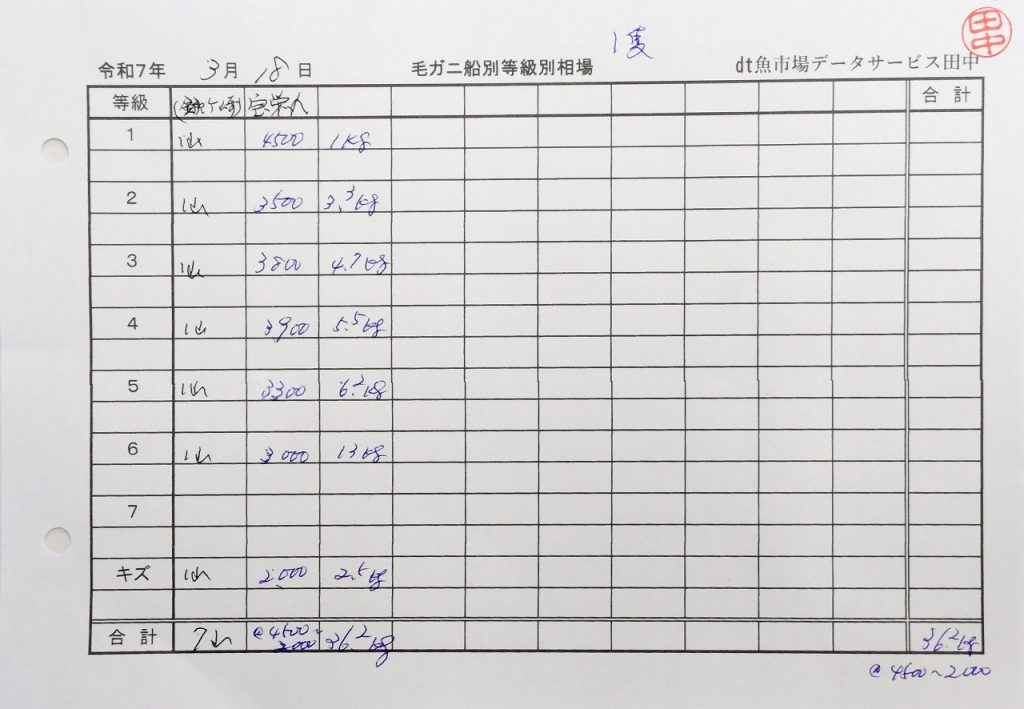 1隻
田中
令和7年 3月 18日 毛ガニ船別等級別相場 dt魚市場データサービス田中
等級 宝栄丸 合計
1 1山 4500 1kg
2 1山 3500 3.3kg
3 1山 3800 4.7kg
4 1山 3900 5.5kg
5 1山 3300 6.2kg
6 1山 3000 13kg
7
キズ 1山 2000 2.5kg
合計 7山 @4500~2000 36.2kg 36.2kg
@4500~2000